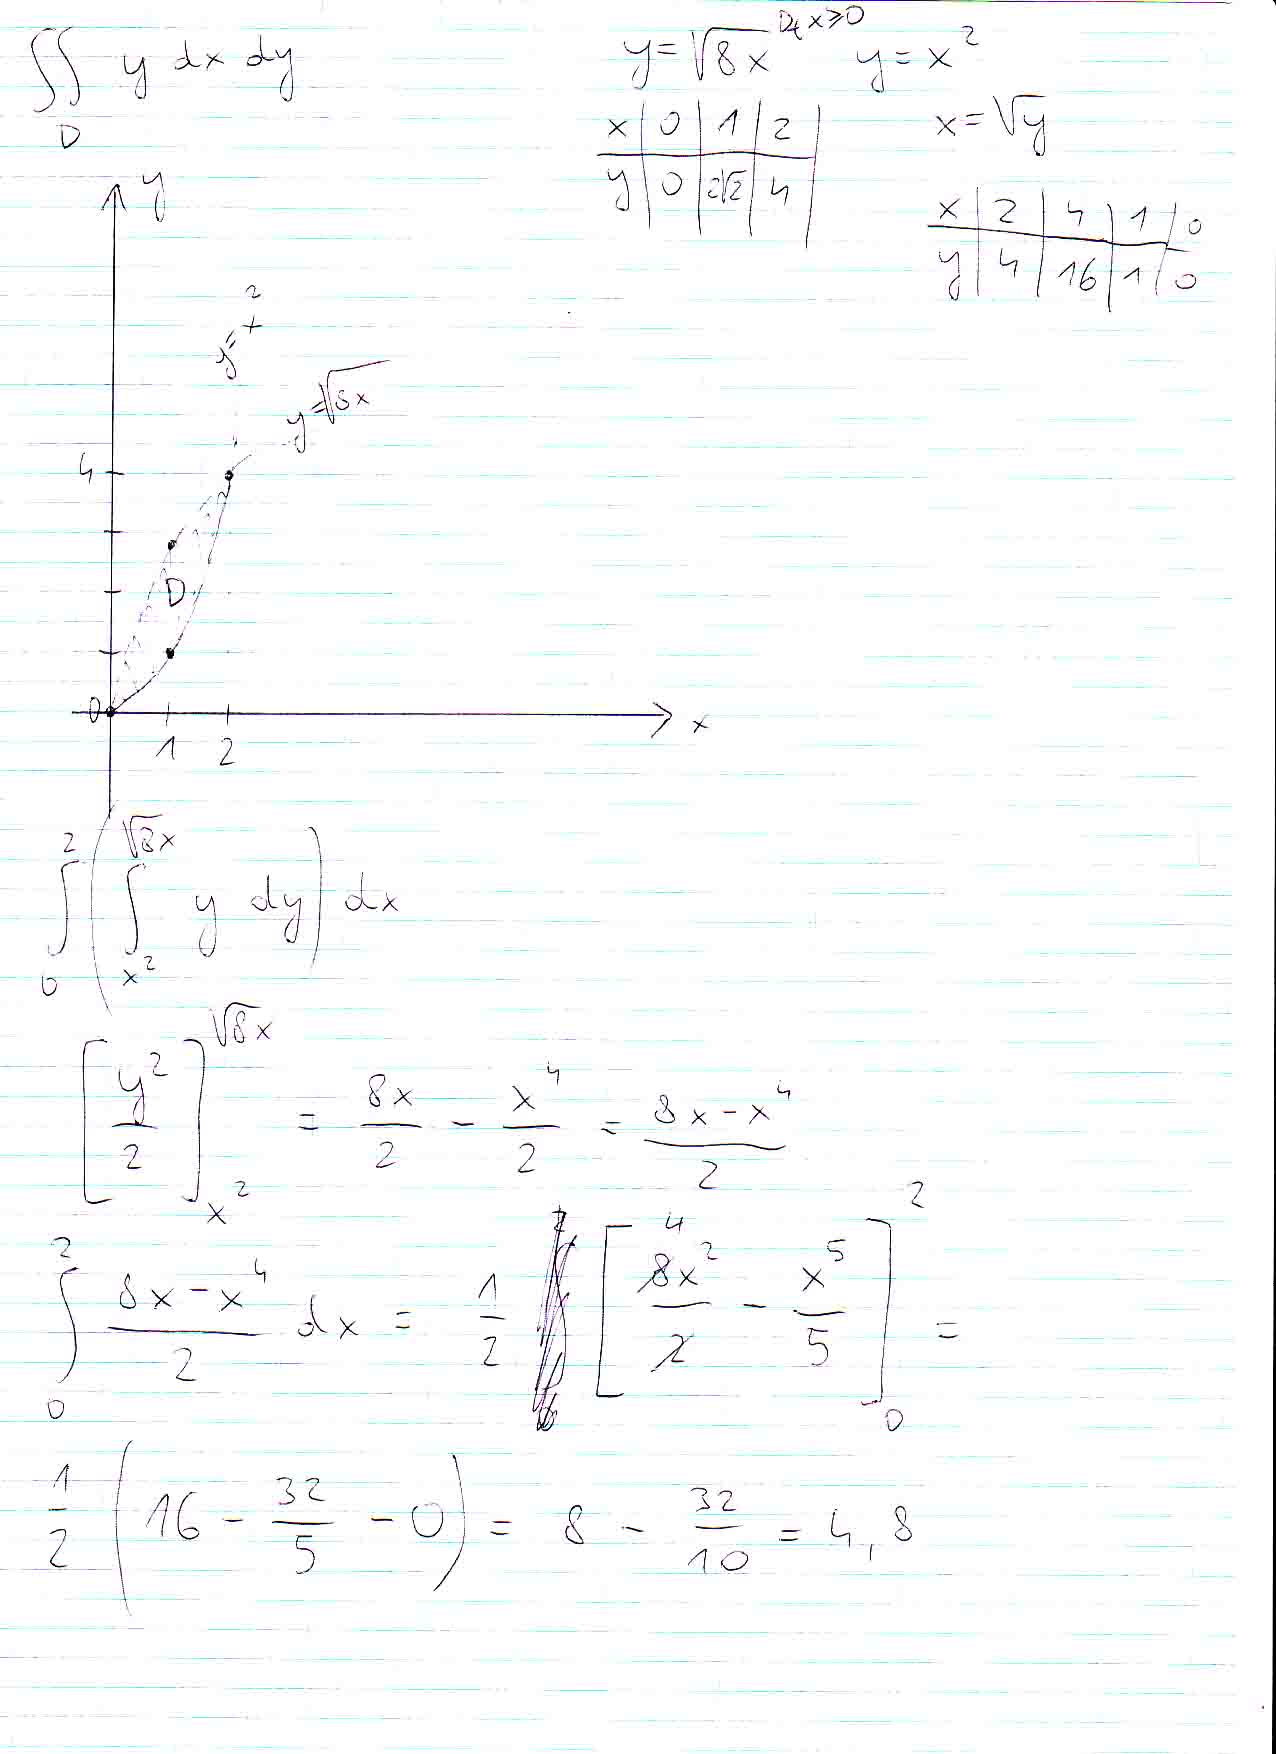 ∬ y dx dy
D
y = √8x  D_f x ≥ 0  y = x²
x = √y
x | 0 | 1 | 2
y | 0 | 2√2 | 4
x | 2 | 4 | 1 | 0
y | 4 | 16 | 1 | 0
y
y = x²
y = √8x
4
D
0
x
1 2
∫₀² ( ∫_{x²}^{√8x} y dy ) dx
[ y²/2 ]_{x²}^{√8x} = 8x/2 - x⁴/2 = (8x - x⁴)/2
∫₀² (8x - x⁴)/2 dx = 1/2 [ 4 8x²/2 - x⁵/5 ]₀² =
1/2 ( 16 - 32/5 - 0 ) = 8 - 32/10 = 4,8